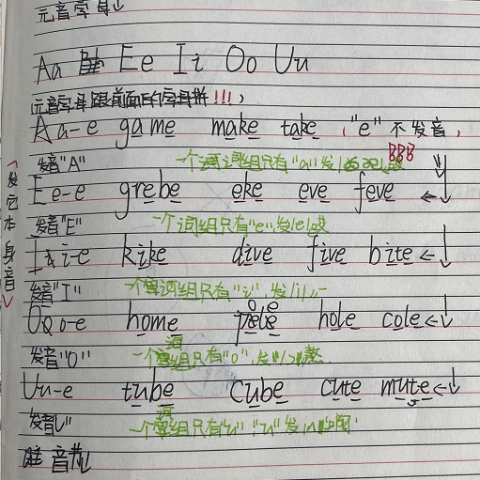 元音字母↓
Aa Ee Ii Oo Uu
元音字母跟前面的字母拼!!!,
A a-e game make take "e"不发音,
发音"A" 一个词组只有"a"发
E e-e grebe eke eve feve ←↓
发音"E" 一个词组只有"e"发/e/
I i-e kike dive five bite ←↓
发音"I" 一个词组只有"i"发/i/
O o-e home hole cole ←↓
发音"O" 一个词组只有"o",发
Uu-e tube cube cute mute ←↓
发音U 一个词组只有"u""u"发
发它本身音